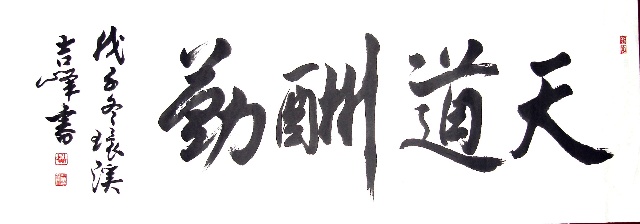 天道酬勤
戊子冬琅溪
吉峰書